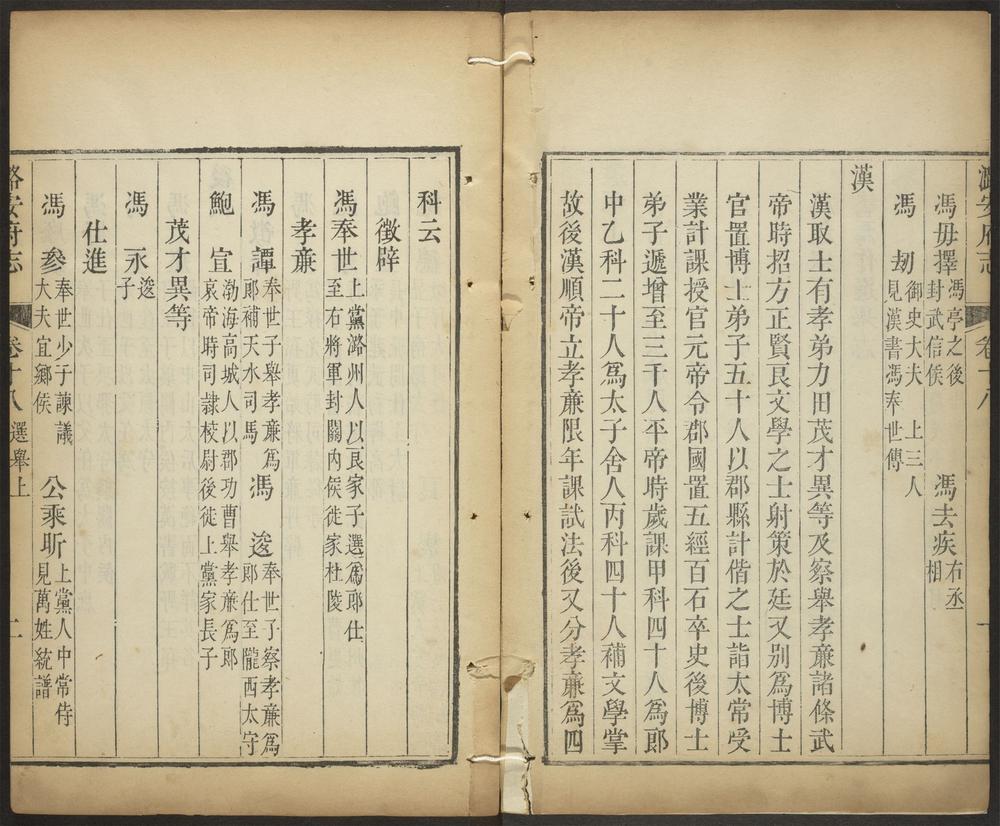 潞安府志
卷十八
一
馮毋擇馮亭之後封武信侯 馮去疾右丞相
馮刼御史大夫見漢書馮奉世傳 上三人
漢
漢取士有孝弟力田茂才異等及察舉孝亷諸條武
帝時招方正賢良文學之士射策於廷又別爲博士
官置博士弟子五十人以郡縣計偕之士詣太常受
業計課授官元帝令郡國置五經百石卒史後博士
弟子遞增至三千人平帝時歲課甲科四十人爲郎
中乙科二十人爲太子舍人丙科四十人補文學掌
故後漢順帝立孝亷限年課試法後又分孝亷爲四
科云
徵辟
馮奉世上黨潞州人以良家子選爲郎仕至右將軍封關內侯徙家杜陵
孝亷
馮譚奉世子舉孝亷爲郎補天水司馬 馮逡奉世子察孝亷爲郎仕至隴西太守
鮑宣渤海高城人以郡功曹舉孝亷爲郎哀帝時司隸校尉後徙上黨家長子
茂才異等
馮永逡子
仕進
馮參奉世少子諫議大夫宜鄉侯 公乘昕上黨人中常侍見萬姓統譜
潞安府志
卷十八 選舉上
二